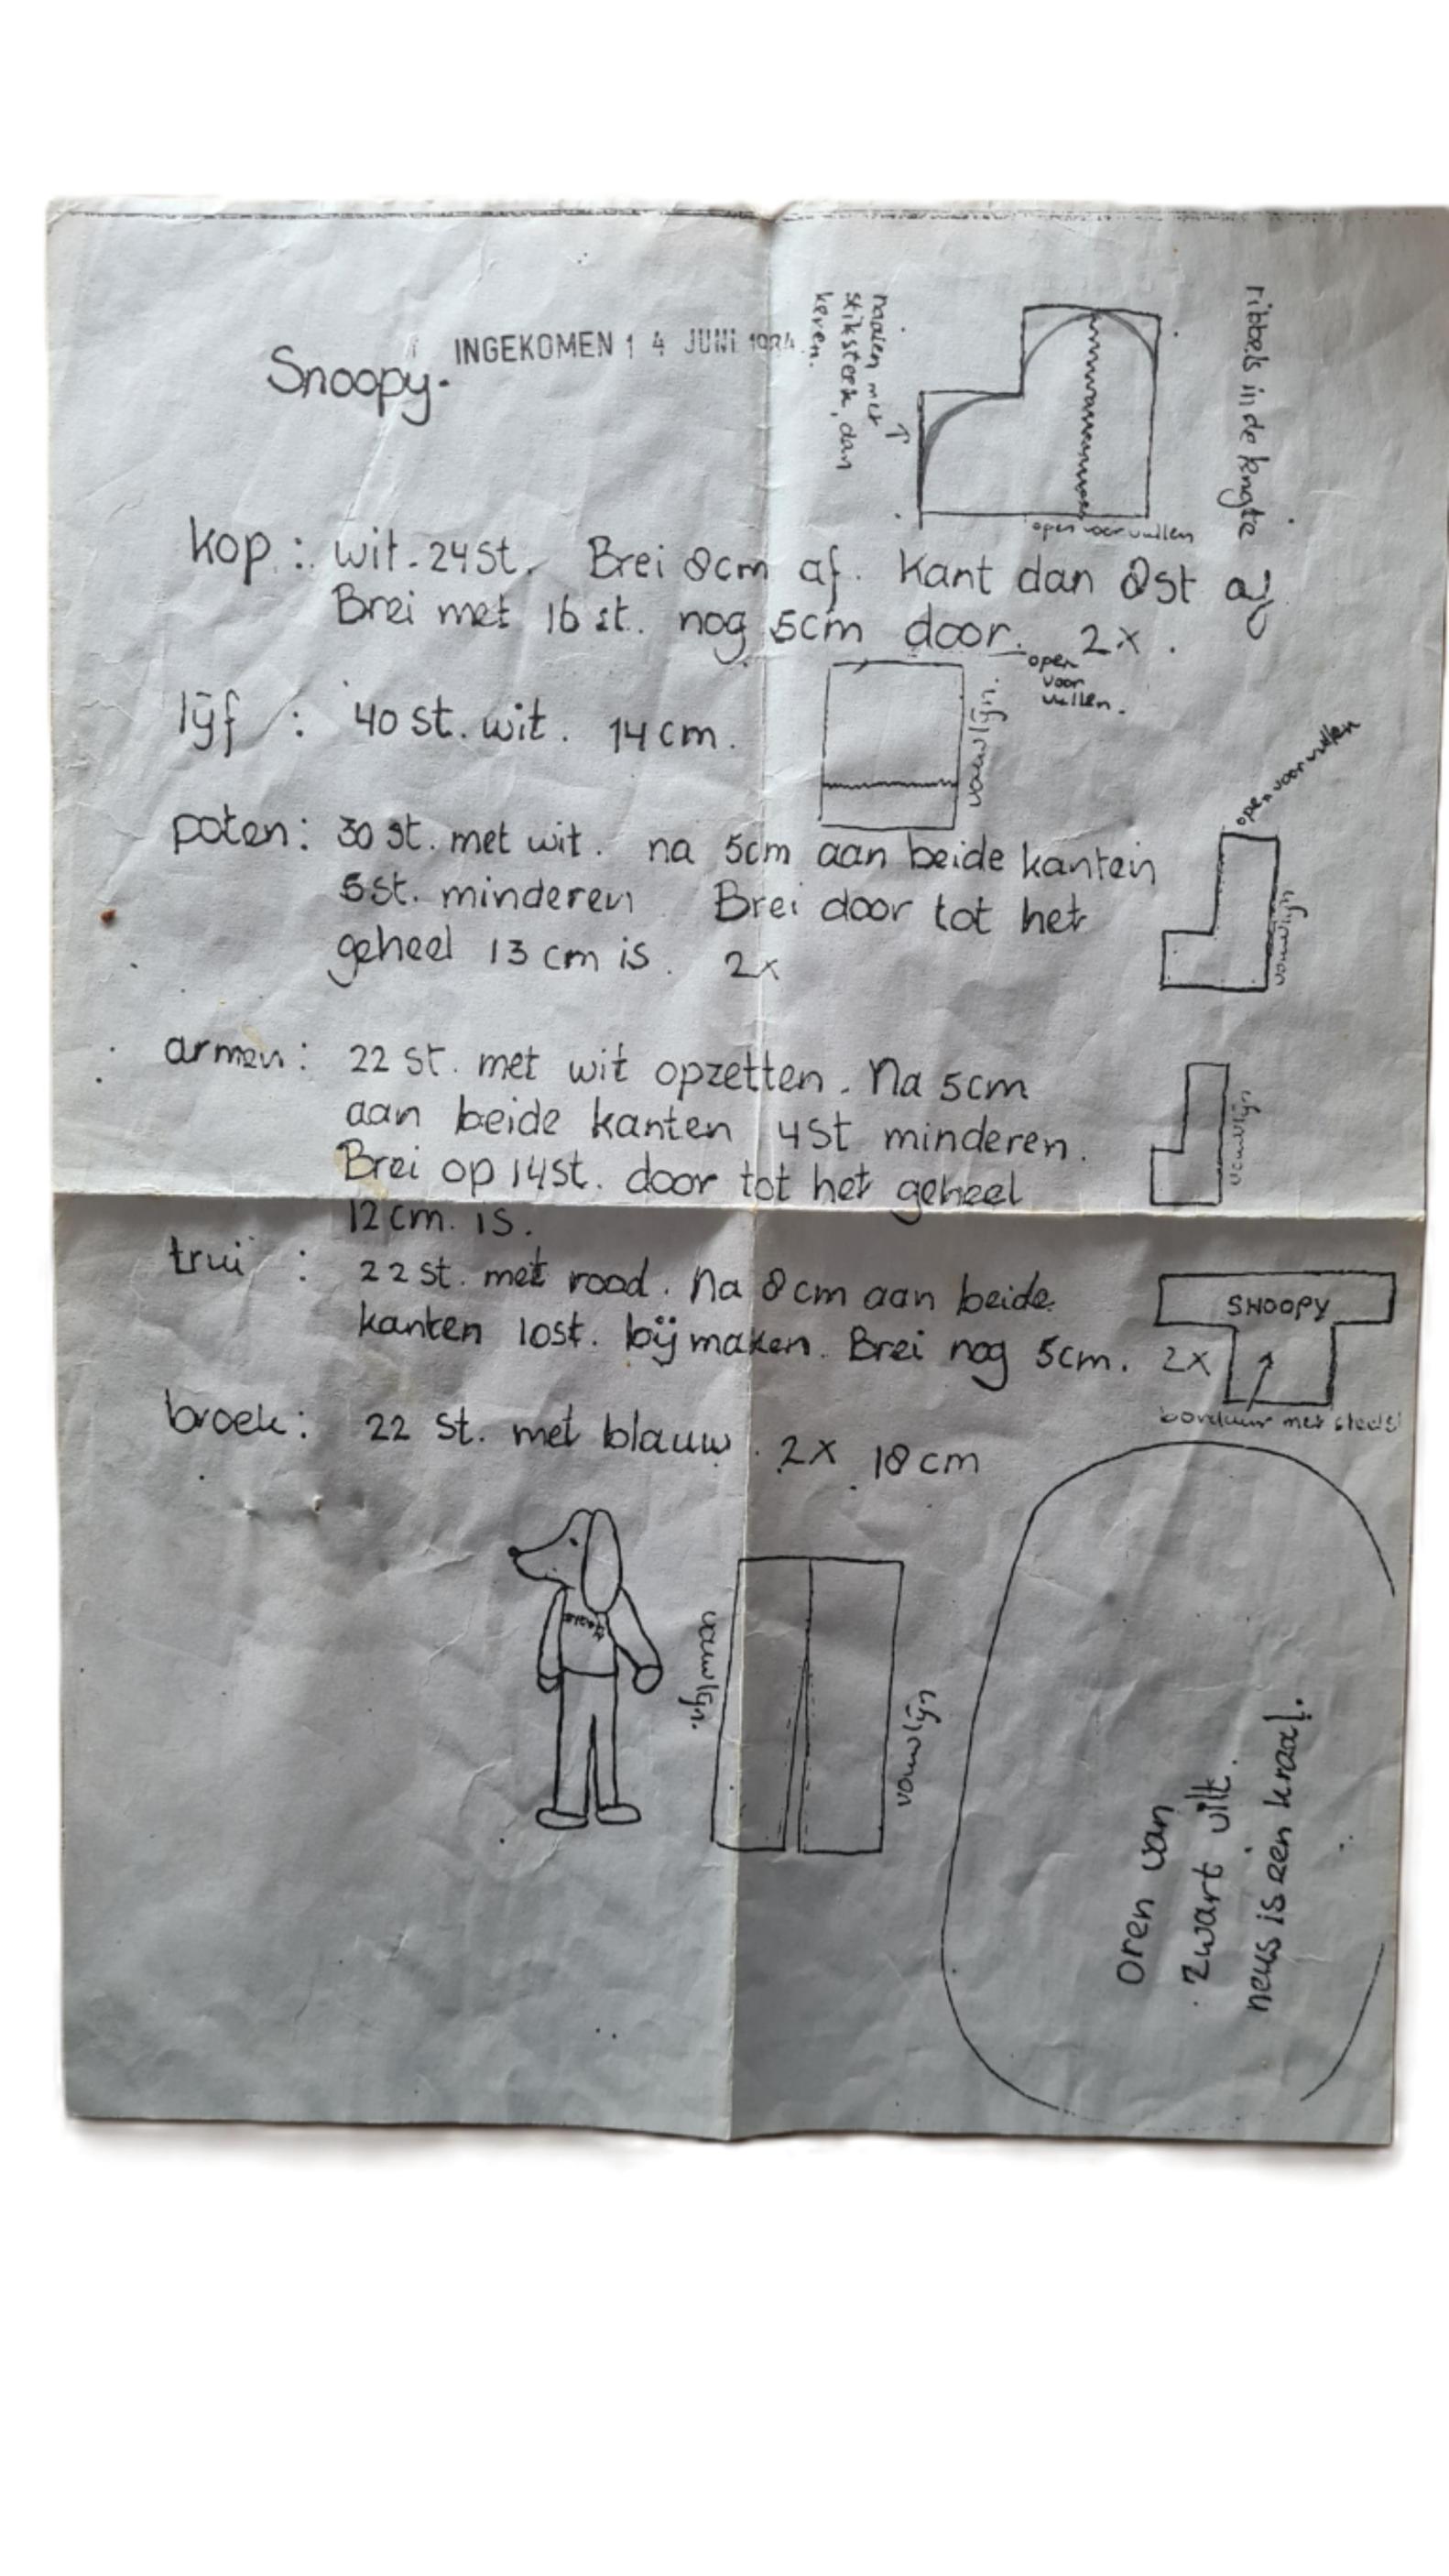 INGEKOMEN 14 JUNI 1984
Snoopy.
naaien met
stiksteek, dan
keren.
ribbels in de lengte
open voor vullen
kop: wit. 24 st. Brei 8cm af. Kant dan 8st af
Brei met 16 st. nog 5cm door. 2x.
open
voor
vullen.
vouwlijn.
lijf: 40 st. wit. 14 cm.
open voor vullen
poten: 30 st. met wit. na 5cm aan beide kanten
5st. minderen Brei door tot het
geheel 13 cm is. 2x
vouwlijn
armen: 22 st. met wit opzetten. Na 5cm
aan beide kanten 4st minderen.
Brei op 14st. door tot het geheel
12 cm. is.
vouwlijn
trui: 22 st. met rood. Na 8 cm aan beide
kanten 10st. bij maken. Brei nog 5cm. 2x
SNOOPY
borduur met
broek: 22 st. met blauw. 2x 18 cm
vouwlijn.
vouwlijn
Oren van
zwart vilt.
neus is een kraal.